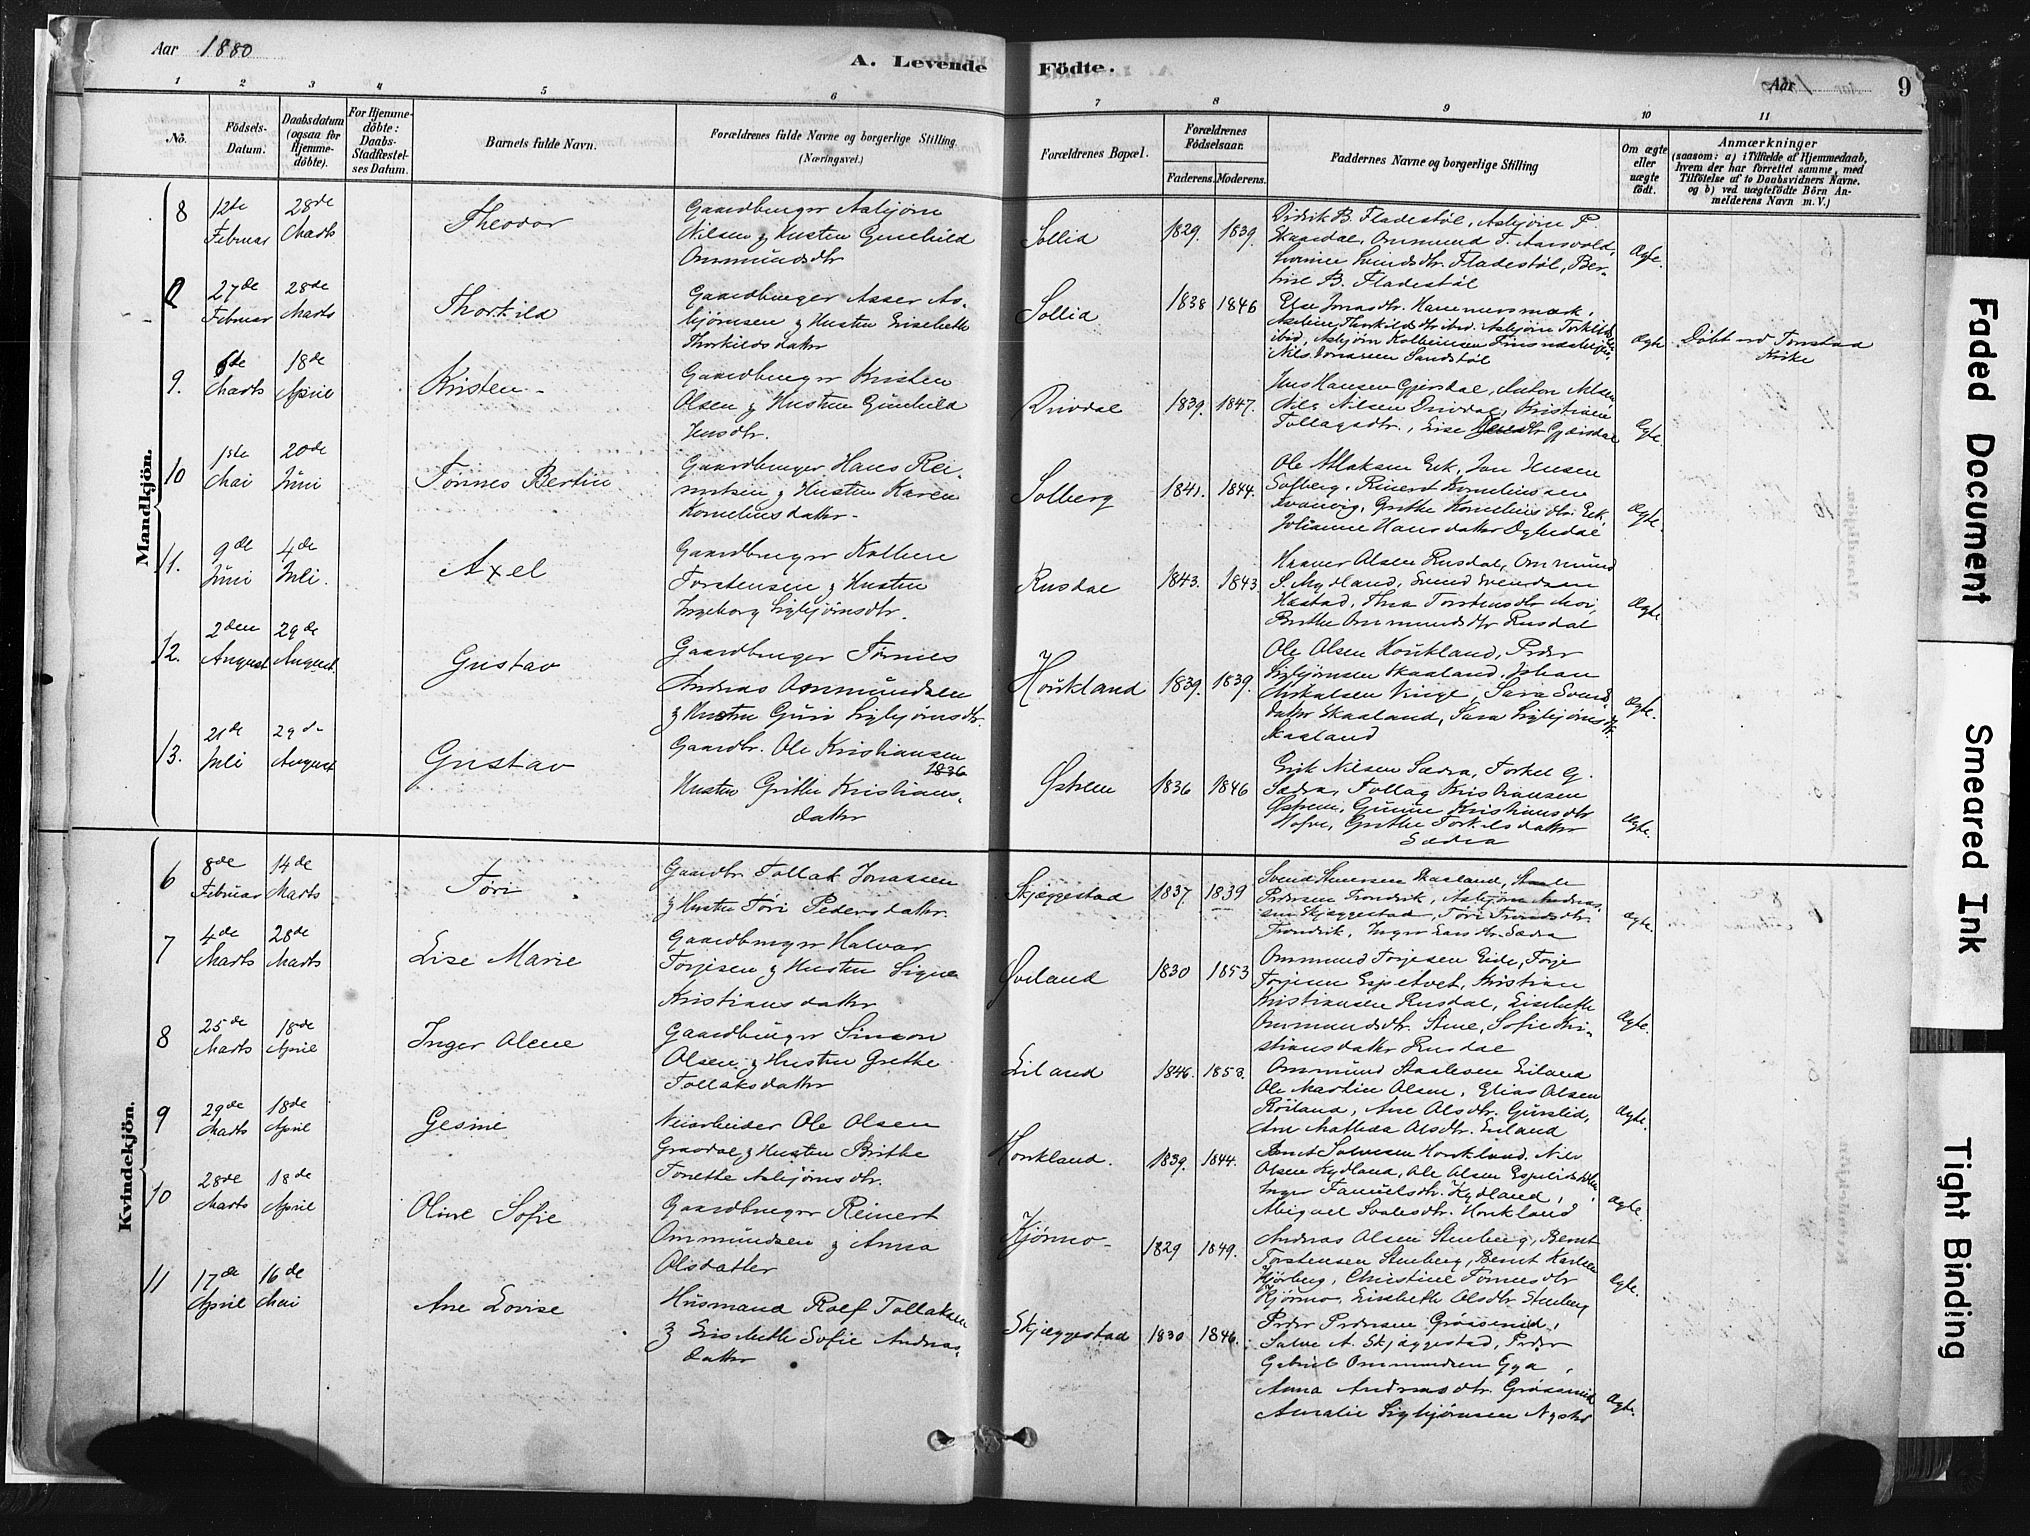 Aar 1880
A. Levende Födte.
Aar
9
1 2 3 4 5 6 7 8 9 10 11
No.
Födsels-Datum.
Daabsdatum (ogsaa for Hjemme-döbte).
For Hjemme-döbte: Daabs-Stadfæstel-ses Datum.
Barnets fulde Navn.
Forældrenes fulde Navne og borgerlige Stilling (Næringsvei.)
Forældrenes Bopæl.
Forældrenes Födselsaar.
Faderens. Moderens.
Faddernes Navne og borgerlige Stilling
Om ægte eller uægte födt.
Anmærkninger
(saasom: a) i Tilfælde af Hjemmedaab,
hvem der har forrettet samme, med
Tilföielse af to Daabsvidners Navne.
og b) ved uægtefödte Börn An-
melderens Navn m. V.)
Mandkjön.
8 12te Februar 28de Marts Theodor
Gaardbruger Asbjørn
Nilsen & Hustru Gunhild
Ommundsdtr
Sollid 1829. 1839.
Didrik B. Fladestøl, Asbjørn P.
Skaardal, Ommund T. Aarsvold,
Svendsdtr. Fladestøl, Ber-
B. Fladestøl
Ægte.
27de Februar 28de Marts Thorkild
Gaardbruger Asser As-
bjørnsen & Hustru Elisebeth
Thorkildsdatter
Sollid 1838 1846
Else Jonasdtr. Hammersmark,
Thorkildsdtr ibid. Asbjørn Torkildsen
ibid, Asbjørn Kolbeinsen
Nils Jonassen Sandstøl
Ægte Døbt ved Tonstad
Kirke
9. 6te Marts 18de April Kristen
Gaardbruger Kristen
Olsen & Hustru Gunhild
Jensdtr.
Drivdal 1839. 1847.
Jens Hansen Gjersdal, Anton Nilsen,
Nils Nilsen Drivdal, Kristiane
Tollagsdtr., Lise Gjersdal
Ægte.
10 1ste Mai 20de Juni Tønnes Bertin
Gaardbruger Hans Rei-
nertsen & Hustru Karen
Korneliusdatter
Solberg 1841. 1844.
Ole Atlaksen Eek, Jon Jensen
Solberg, Reinert Korneliussen
Kvanvig, Grethe Korneliusdtr. Eek,
Johanne Hansdatter
Ægte.
11. 9de Juni 4de Juli. Axel
Gaardbruger Kolbein
Torstensen & Hustru
Ingeborg Sigbjørnsdtr.
Rusdal 1843. 1843.
Haaver Olsen Rusdal, Ommund
S. Mydland, Svend Svendsen
Hastad, Thea Torstensdtr Moi,
Berthe Ommundsdtr Rusdal
Ægte.
12. 2den August 29de August. Gustav
Gaardbruger Tønnes
Andreas Ommundsen
& Hustru Guri Sigbjørnsdtr.
Houkland 1839. 1839.
Ole Olsen Houkland, Peder
Sigbjørnsen Skaaland, Johan
Mikalsen Vinge, Sara Svend-
datter Skaaland, Sara Sigbjørnsdtr.
Skaaland
Ægte.
13. 21de Juli 29de August Gustav
Gaardbr. Ole Kristiansen
1836
Hustru Grethe Kristians-
datter
Østrem 1836 1846
Erik Nilsen Sædra, Torkel G.
Sædra, Tollag Kristiansen
Østrem, Gunne Kristiansdtr
Hofve, Grethe Torkelsdatter
Sædra
Ægte.
Kvindekjön.
6 8de Februar 14de Marts Tori
Gaardbr. Tollak Jonassen
& Hustru Tori Pedersdatter
Skjæggestad 1837. 1839
Svend Stensen Skaaland, Staale
Pedersen Trondvik, Asbjørn Andreas-
sen Skjæggestad, Tori Trondsdtr.
Trondvik, Inger Larsdtr. Sædra
Ægte.
7 4de Marts 28de Marts Lise Marie
Gaardbruger Halvar
Torjesen & Hustru Signe
Kristiansdatter
Øveland 1830 1853
Ommund Torjesen Eide, Torje
Torjesen Espetvet, Kristian
Kristiansen Rusdal, Lisebeth
Ommundsdtr. Stene, Sofie Kri-
stiansdatter Rusdal
Ægte.
8 25de Marts 18de April Inger Olene
Gaardbruger Simon
Olsen & Hustru Grethe
Tollaksdatter
Eiland 1846. 1853.
Ommund Staalesen Eiland
Ole Martin Olsen, Elias Olsen
Røiland, Ane Olsdtr. Gjerslid,
Ane Mathea Olsdtr. Eiland
Ægte.
9 29de Marts 18de April Gesine
Veiarbeider Ole Olsen
Graadal & Hustru Brithe
Tonette Asbjørnsdtr.
Houkland. 1839. 1844.
Bernt Salvesen Houkland, Nils
Olsen Kydland, Ole Olsen
Inger Samuelsdtr. Kydland,
Abigael Svalesdtr. Houkland
Ægte.
10 28de Marts 18de April Oline Sofie
Gaardbruger Reinert
Ommundsen & Anna
Olsdatter
Kjørmo 1829 1849.
Andreas Olsen Stenberg, Bernt
Torstensen Stenberg, Bernt Karlsen
Kjørberg, Christine Tønnesdtr
Kjørmo, Elisebeth Olsdtr. Stenberg
Ægte.
11 17de April 16de Mai Ane Lovise
Husmand Rolf Tollaksen
& Lisebeth Sofie Andreas-
datter
Skjæggestad 1830 1846.
Peder Pedersen Grøsmid,
Salve A. Skjæggestad, Peder
Gabriel Ommundsen Gya,
Anna Andreasdtr. Grøsmid
Amalie Sigbjørnsen Nysted
Ægte.
Faded Document
Smeared Ink
Tight Binding